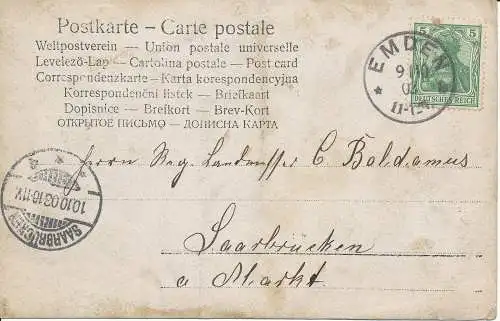 Postkarte – Carte postale
Weltpostverein — Union postale universelle
Levelező-Lap — Cartolina postale — Post card
Correspondenzkarte — Karta korespondencyjna
Korrespondenční lístek — Briefkaart
Dopisnice — Brefkort — Brev-Kort
ОТКРЫТОЕ ПИСЬМО — ДОПИСНА КАРТА
5 5
DEUTSCHES REICH
EMDEN
9.10
03
SAARBRÜCKEN
10.10.03.10-11V.
Herrn Reg. Landmesser C Baldamus
Saarbrücken
a Markt.